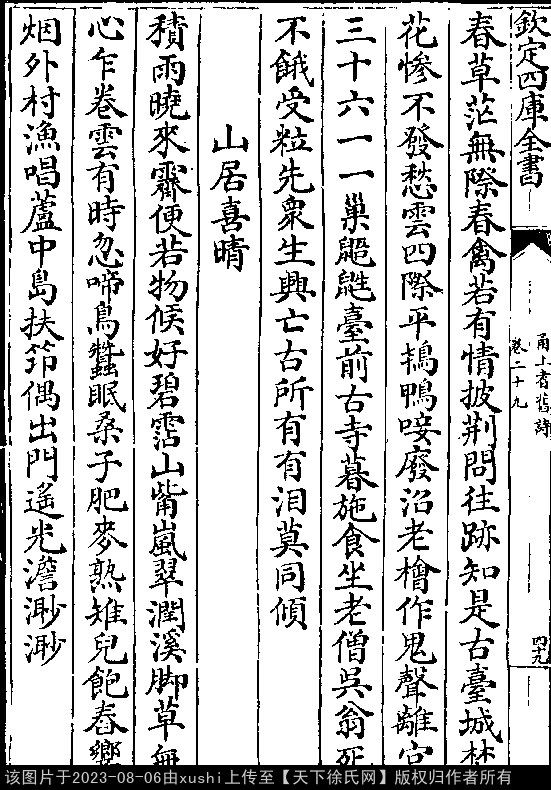 欽定四庫全書
甬上耆舊詩
卷二十九
四十九
春草茫無際春禽若有情披荆問往跡知是古臺城
花慘不發愁雲四際平鴨唼廢沼老檜作鬼聲離宮
三十六一一巢鼯鼪臺前古寺暮施食坐老僧吳翁死
不餓受粒先衆生興亡古所有有泪莫同傾
山居喜晴
積雨曉來霽便若物候好碧霑山觜嵐翠潤溪脚草無
心乍卷雲有時忽啼鳥蠶眠桑子肥麥熟雉兒飽舂響
烟外村漁唱蘆中島扶筇偶出門遙光澹渺渺
该图片于2023-08-06由xushi上传至【天下徐氏网】版权归作者所有